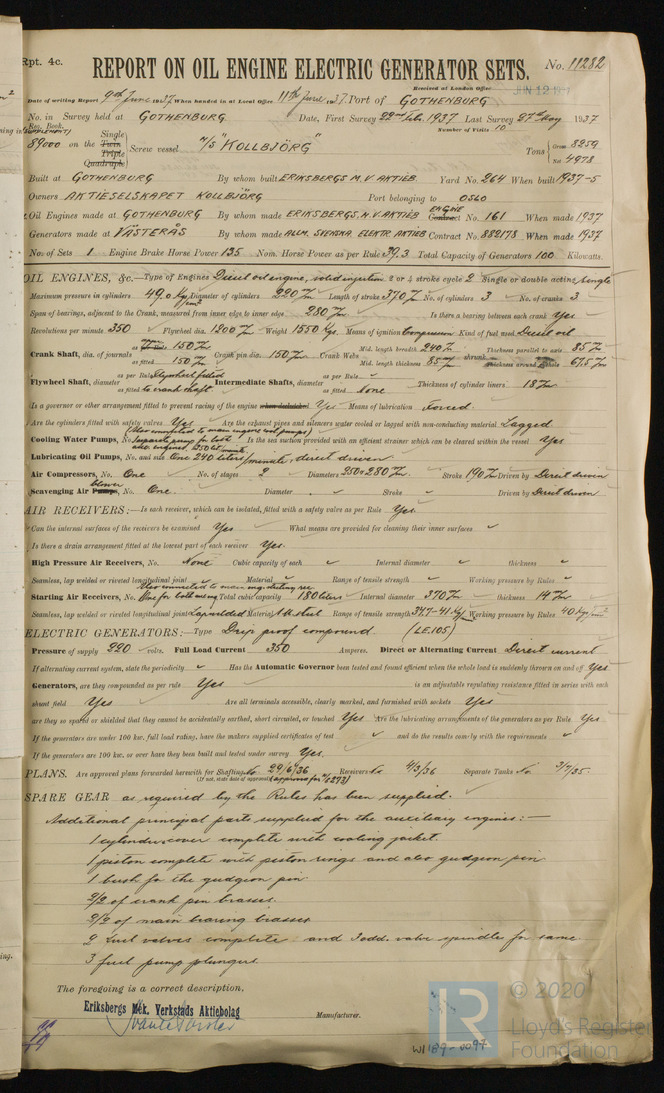 Rpt. 4c.
REPORT ON OIL ENGINE ELECTRIC GENERATOR SETS.
No. 11282
Received at London Office JUN 12 1937
Date of writing Report 9th June 1937 When handed in at Local Office 11th June 1937 Port of GOTHENBURG
No. in Survey held at GOTHENBURG Date, First Survey 22nd Feb. 1937 Last Survey 27th May 1937
Reg. Book. Number of Visits 10
(SUPPLEMENT)
89000 on the Single Twin Triple Quadruple Screw vessel M/S "KOLLBJÖRG" Tons Gross 8259 Net 4978
Built at GOTHENBURG By whom built ERIKSBERGS M.V. AKTIEB. Yard No. 264 When built 1937-5
Owners AKTIESELSKAPET KOLLBJÖRG Port belonging to OSLO
Oil Engines made at GOTHENBURG By whom made ERIKSBERGS, M.V. AKTIEB ENGINE Contract No. 161 When made 1937
Generators made at VÄSTERÅS By whom made ALLM. SVENSKA. ELEKTR. AKTIEB Contract No. 882178 When made 1937
No. of Sets 1 Engine Brake Horse Power 135 Nom. Horse Power as per Rule 39.3 Total Capacity of Generators 100 Kilowatts.
OIL ENGINES, &c.—Type of Engines Diesel oil engine, solid injection 2 or 4 stroke cycle 2 Single or double acting Single
Maximum pressure in cylinders 49.0 Kg/cm² Diameter of cylinders 220 7m Length of stroke 370 7m No. of cylinders 3 No. of cranks 3
Span of bearings, adjacent to the Crank, measured from inner edge to inner edge 280 7m Is there a bearing between each crank Yes
Revolutions per minute 350 Flywheel dia. 1200 7m Weight 1550 Kgs. Means of ignition Compression Kind of fuel used Diesel oil
Crank Shaft, dia. of journals as per Rule 150 7m as fitted 150 7m Crank pin dia. 150 7m Crank Webs Mid. length breadth 240 7m Mid. length thickness 85 7m shrunk Thickness parallel to axis 85 7m Thickness around eyehole 67.5 7m
Flywheel Shaft, diameter as per Rule Flywheel fitted as fitted to crank shaft Intermediate Shafts, diameter as per Rule as fitted None Thickness of cylinder liners 18 7m
Is a governor or other arrangement fitted to prevent racing of the engine when declutched Yes Means of lubrication Forced
Are the cylinders fitted with safety valves Yes Are the exhaust pipes and silencers water cooled or lagged with non-conducting material Lagged
(Also connected to main engine cool. pumps)
Cooling Water Pumps, No. 1 separate pump for both aux. engines, 250 lit/minute Is the sea suction provided with an efficient strainer which can be cleared within the vessel Yes
Lubricating Oil Pumps, No. and size One 240 liters/minute, direct driven
Air Compressors, No. One No. of stages 2 Diameters 250 & 280 7m Stroke 190 7m Driven by Direct driven
Scavenging Air Pumps, blower No. One. Diameter Stroke Driven by Direct driven
AIR RECEIVERS:—Is each receiver, which can be isolated, fitted with a safety valve as per Rule Yes
Can the internal surfaces of the receivers be examined Yes What means are provided for cleaning their inner surfaces
Is there a drain arrangement fitted at the lowest part of each receiver Yes.
High Pressure Air Receivers, No. None Cubic capacity of each Internal diameter thickness
Seamless, lap welded or riveted longitudinal joint Material Range of tensile strength Working pressure by Rules
Also connected to main eng. starting rec.
Starting Air Receivers, No. One for both aux eng. Total cubic capacity 180 liters Internal diameter 370 7m thickness 14 7m
Seamless, lap welded or riveted longitudinal joint Lapwelded Material S.M. steel Range of tensile strength 34.7-41 Kg/7m² Working pressure by Rules 40 kg/cm²
ELECTRIC GENERATORS:—Type Drip proof compound. (LE.105)
Pressure of supply 220 volts. Full Load Current 350 Amperes. Direct or Alternating Current Direct current
If alternating current system, state the periodicity Has the Automatic Governor been tested and found efficient when the whole load is suddenly thrown on and off Yes
Generators, are they compounded as per rule Yes is an adjustable regulating resistance fitted in series with each
shunt field Yes Are all terminals accessible, clearly marked, and furnished with sockets Yes
are they so spaced or shielded that they cannot be accidentally earthed, short circuited, or touched Yes Are the lubricating arrangements of the generators as per Rule Yes
If the generators are under 100 kw. full load rating, have the makers supplied certificates of test and do the results comply with the requirements
If the generators are 100 kw. or over have they been built and tested under survey Yes.
PLANS. Are approved plans forwarded herewith for Shafting No 29/6/36 Receivers No 4/3/36 Separate Tanks No 3/7/35.
(If not, state date of approval)
SPARE GEAR as required by the Rules has been supplied.
Additional principal parts supplied for the auxiliary engines:—
1 cylinder cover complete with cooling jacket.
1 piston complete with piston rings and also gudgeon pin
1 bush for the gudgeon pin
2/2 of crank pin brasses.
2/2 of main bearing brasses
2 fuel valves complete and 3 add. valve spindle for same
3 fuel pump plungers.
The foregoing is a correct description,
Eriksbergs Mek. Verkstads Aktiebolag
Manufacturer.
© 2020
LR
Lloyd's Register
Foundation
W1189-0097